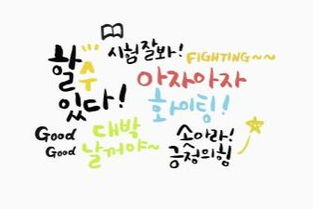 할 수 있다!
시험잘봐!
FIGHTING~~
아자아자
화이팅!
Good
Good
대박
날꺼야~
쏘아라!
긍정의힘